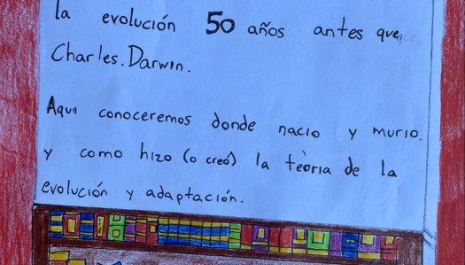 la evolución 50 años antes que
Charles.Darwin.
Aqui conoceremos donde nacio y murio.
y como hizo (o creó) la teoria de la
evolución y adaptación.